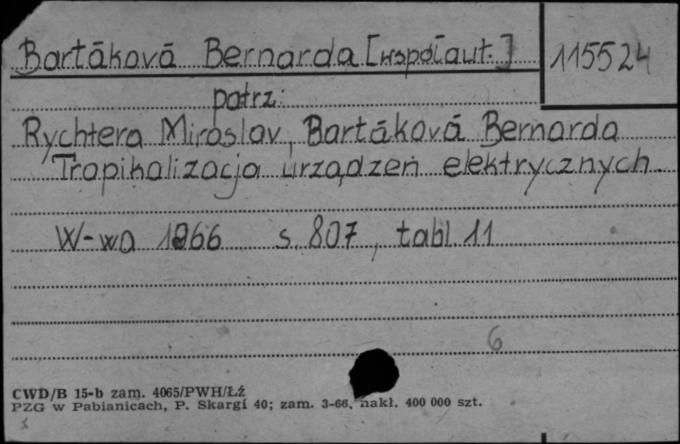 Bartáková Bernarda [współaut.] 115524
patrz:
Rychtera Miroslav, Bartáková Bernarda
Tropikalizacja urządzeń elektrycznych.
W-wa 1966 s. 807, tabl. 11
6
CWD/B 15-b zam. 4065/PWH/Łź
PZG w Pabianicach, P. Skargi 40; zam. 3-66, nakł. 400 000 szt.